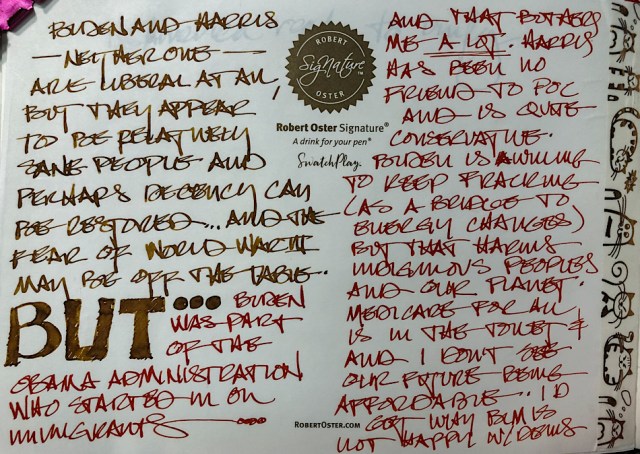 BIDEN AND HARRIS
— NEITHER ONE —
ARE LIBERAL AT ALL,
BUT THEY APPEAR
TO BE RELATIVELY
SANE PEOPLE AND
PERHAPS DECENCY CAN
BE RESTORED... AND THE
FEAR OF WORLD WAR III
MAY BE OFF THE TABLE..
BUT... BIDEN
WAS PART
OF THE
OBAMA ADMINISTRATION
WHO STARTED IN ON
IMMIGRANTS
ROBERT
SigNature™
OSTER
Robert Oster Signature®
A drink for your pen®
SwatchPlay.
AND THAT BOTHERS
ME A LOT. HARRIS
HAS BEEN NO
FRIEND TO POC
AND IS QUITE
CONSERVATIVE.
BIDEN IS WILLING
TO KEEP FRACKING
(AS A BRIDGE TO
ENERGY CHANGES)
BUT THAT HARMS
INDIGINOUS PEOPLES
AND OUR PLANET.
MEDICARE FOR ALL
IS IN THE TOILET &
AND I DON'T SEE
OUR FUTURE BEING
AFFORDABLE.. I'D
GET WHY BLM IS
NOT HAPPY W/DEMS
ROBERTOSTER.COM